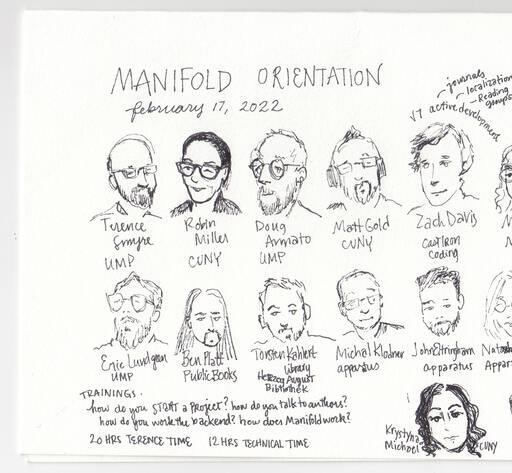 MANIFOLD ORIENTATION
february 17, 2022
journals
localization
Reading
groups
V7 active development
Terence
Smyre
UMP
Robin
Miller
CUNY
Doug
Armato
UMP
Matt Gold
CUNY
Zach Davis
Cast Iron
Coding
Eric Lundgren
UMP
Ben Platt
Public Books
Torsten Kahlert
Library
Herzog August
Bibliothek
Michal Klodner
apparatus
John Ettringham
apparatus
TRAININGS.
how do you START a project? how do you talk to authors?
how do you work the backend? how does Manifold work?
20 HRS TERENCE TIME 12 HRS TECHNICAL TIME
Krystyna
Michael
CUNY